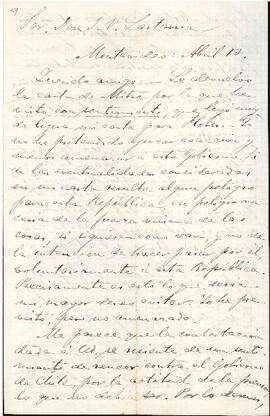 9
Sor. Don J. V. Lastarria
Montevideo: Abril 13.
Querido amigo: — Le devuelvo
la carta de Mitre por la que he
visto con sentimiento, que leyó muy
de ligera mi carta para Ud. Yo
no he pretendido
menos amenazar a este Gobierno. Si
de las eventualidades consideradas
en mi carta resulta algún peligro
para esta República, ese peligro na-
cería de la fuerza misma de las
cosas, si siguiesen como van, y no de
la intención de hacer pasar por él,
voluntariamente a esta República
Precisamente es esto lo que sería
mi mayor deseo evitar. Yo he pre-
visto, pero no amenazado.
Me parece que la contestación
dada a Ud. se resiente de un senti-
miento de rencor contra el Gobierno
de Chile, por la actitud de la prensa
lo que no debía ser. Por lo demás,